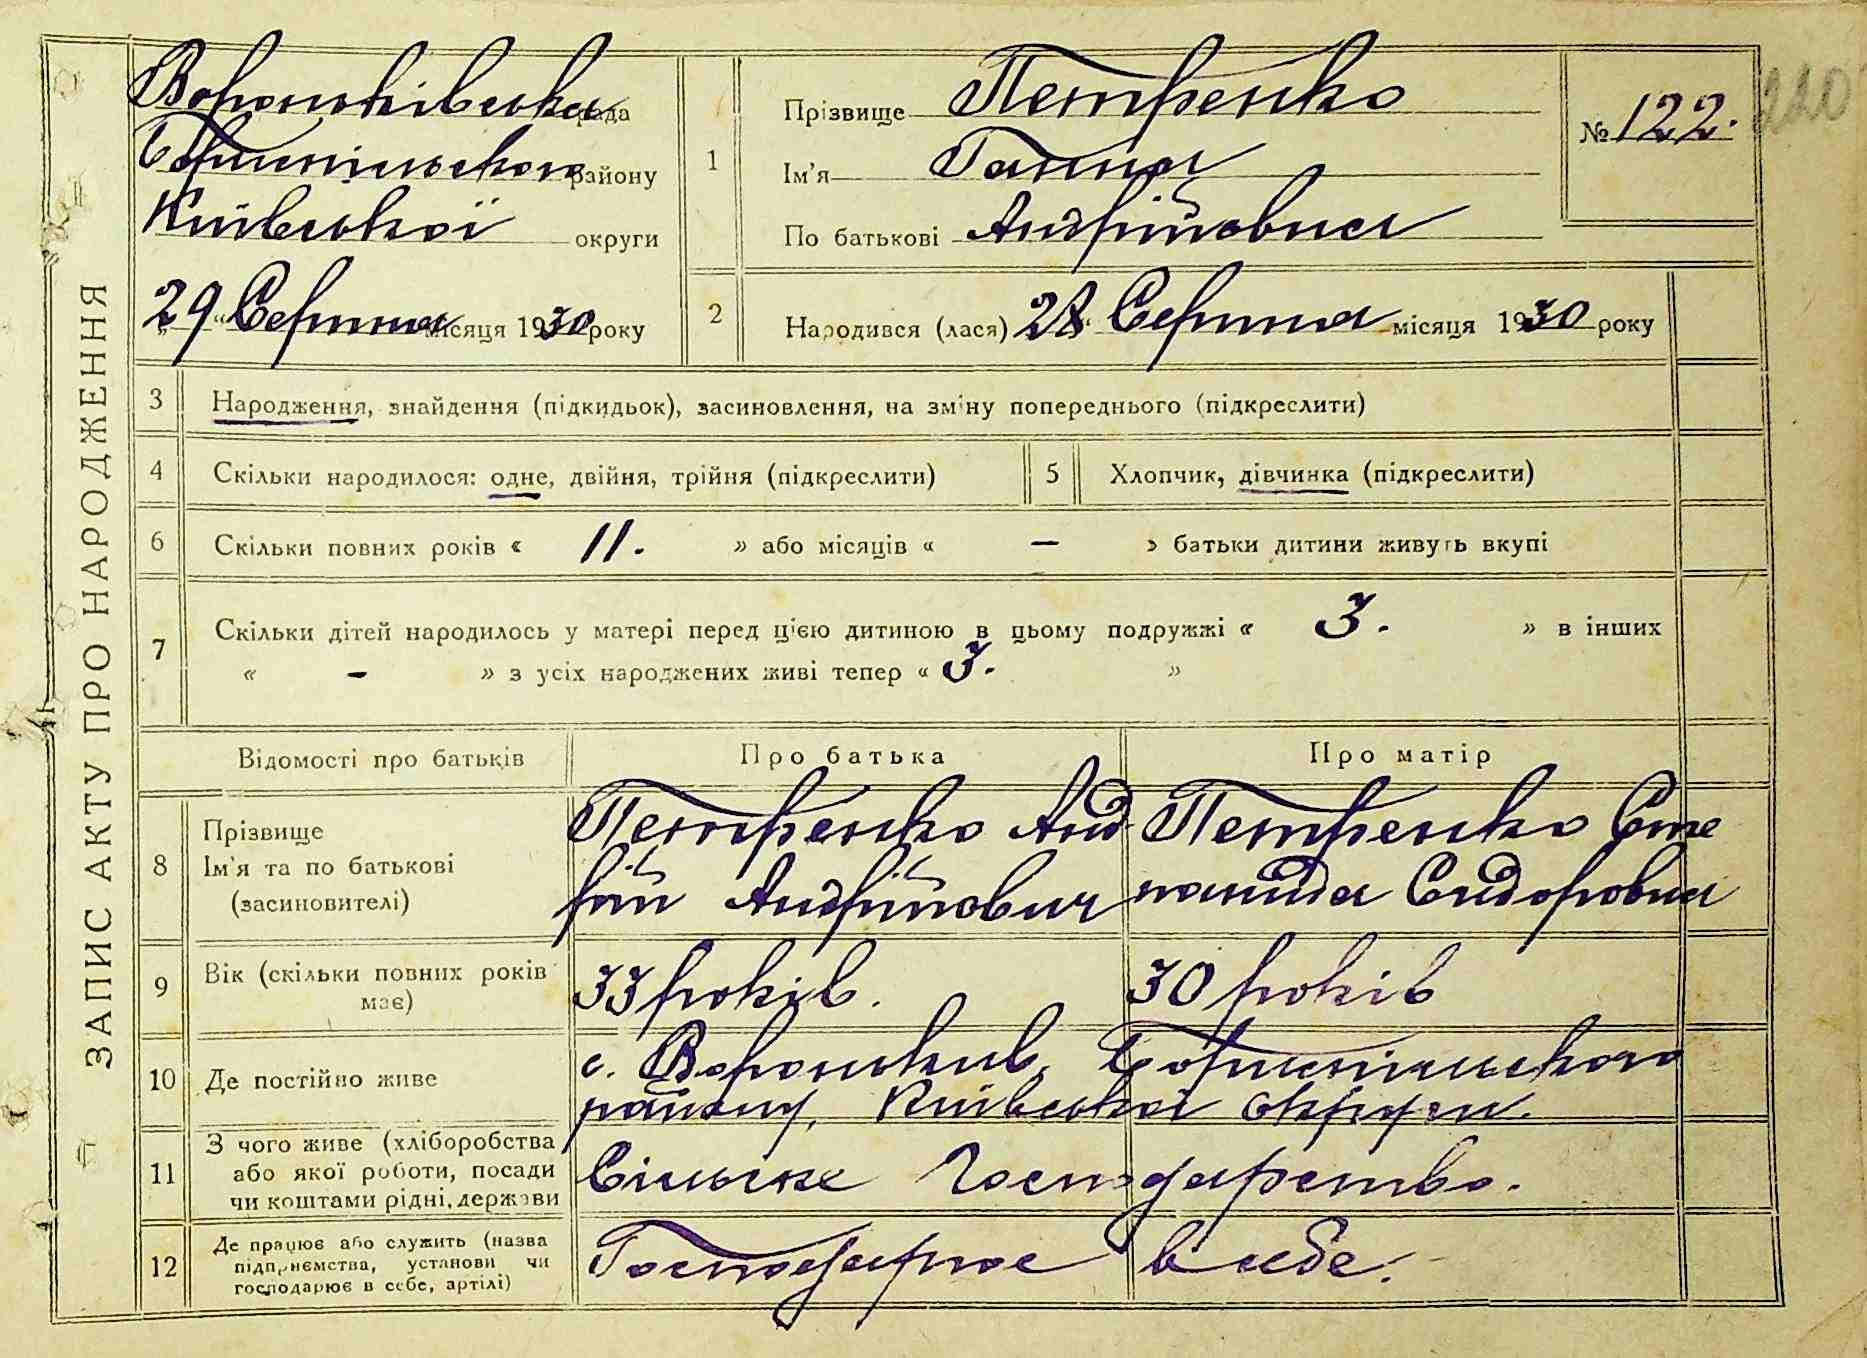 ЗАПИС АКТУ ПРО НАРОДЖЕННЯ
Вороньківська рада
Бориспільського району
Київської округи
„29“ Серпня місяця 1930 року
1
Прізвище Петренко
Ім'я Ганна
По батькові Андрійовна
№ 122.
220
2
Народився (лася) 28 Серпня місяця 1930 року
3 Народження, знайдення (підкидьок), засиновлення, на зміну попереднього (підкреслити)
4 Скільки народилося: одне, двійня, трійня (підкреслити) 5 Хлопчик, дівчинка (підкреслити)
6 Скільки повних років « 11. » або місяців « – » батьки дитини живуть вкупі
7 Скільки дітей народилось у матері перед цією дитиною в цьому подружжі « 3. » в інших
« – » з усіх народжених живі тепер « 3. »
Відомості про батьків Про батька Про матір
8 Прізвище
Ім'я та по батькові
(засиновителі)
Петренко Анд
рій Андрійович
Петренко Сте
панида Сидоровна
9 Вік (скільки повних років
має)
33 років. 30 років
10 Де постійно живе
с. Вороньків, Бориспільського
району, Київської округи.
11 З чого живе (хліборобства
або якої роботи, посади
чи коштами рідні, держави
Сільське Господарство.
12 Де працює або служить (назва
підприємства, установи чи
господарює в себе, артілі)
Господарює в себе.